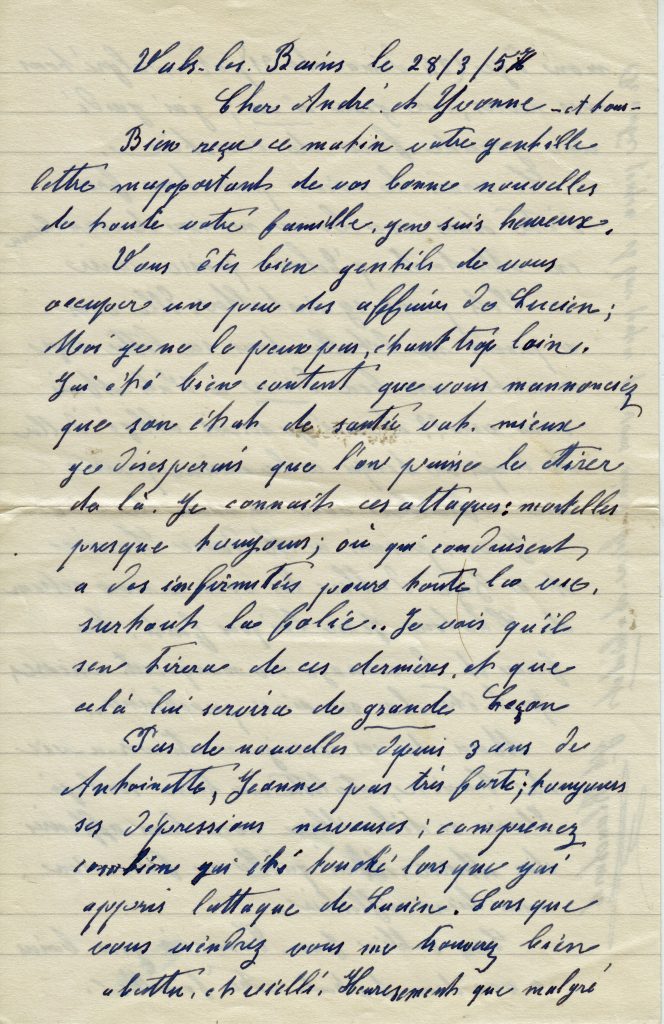 Vals-les-Bains le 28/3/57
Cher André. et Yvonne - et tous -
Bien reçu ce matin votre gentille
lettre mapportant de vos bonne nouvelles
de toute votre famille, gen suis heureux.
Vous êtes bien gentils de vous
occuper un peu des affaires de Lucien ;
Moi ge ne le peux pas, étant trop loin.
J'ai été bien content que vous mannonciez
que son état de santé vat. mieux
ge désesperais que l'on puisse le tirer
de là. Je connait ces attaques : mortelles
presque tougours ; où qui conduisent
a des infirmités pour toute la vie,
surtout la folie.. Je vois qu'il
sen tirera de ces dernières, et que
celà lui servira de grande Leçon
Pas de nouvelles depuis 3 ans de
Antoinette, Jeanne pas très forte ; tougours
ses dépressions nerveuses ; comprenez
combien gai été touché lorsque gai
appris lattaque de Lucien. Lorsque
vous viendrez vous me trouvez bien
abattu, et vieilli. Heuresement que malgré